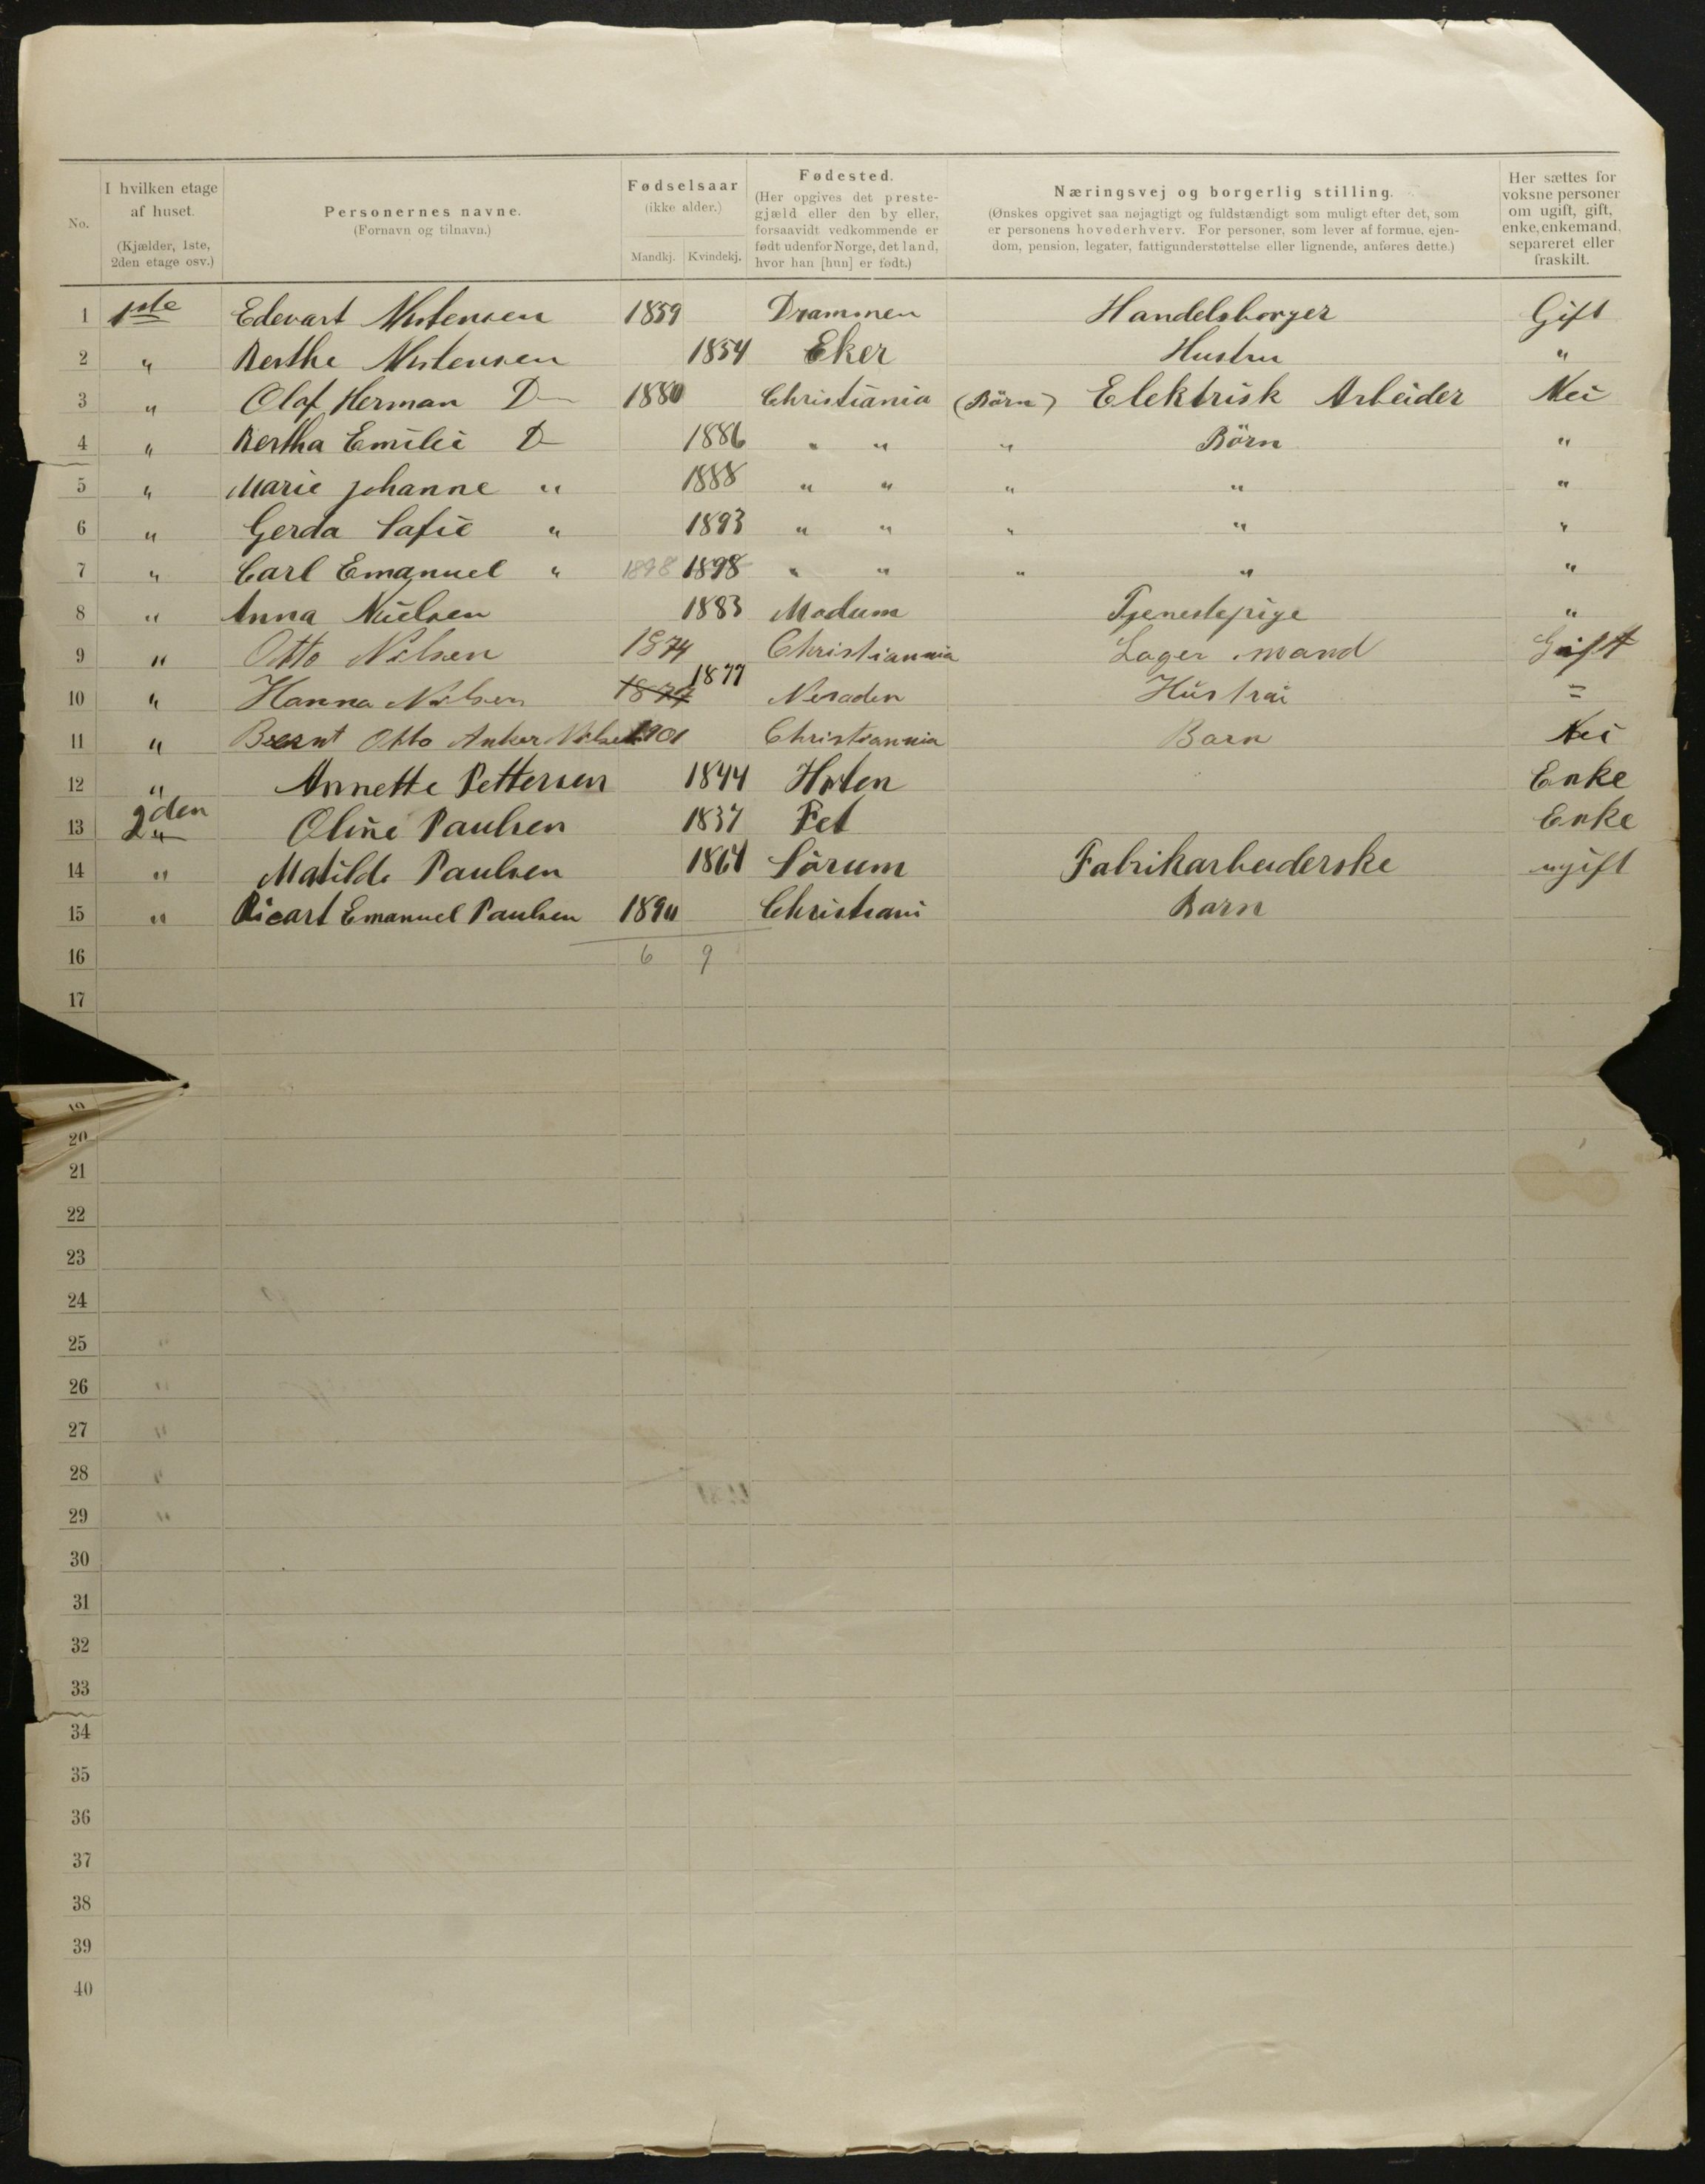 No.
I hvilken etage af huset. (Kjælder, 1ste, 2den etage osv.)
Personernes navne. (Fornavn og tilnavn.)
Fødselsaar (ikke alder.) Mandkj. Kvindekj.
Fødested. (Her opgives det prestegjæld eller den by eller, forsaavidt vedkommende er født udenfor Norge, det land, hvor han [hun] er født.)
Næringsvej og borgerlig stilling. (Ønskes opgivet saa nøjagtigt og fuldstændigt som muligt efter det, som er personens hovederhverv. For personer, som lever af formue, ejendom, pension, legater, fattigunderstøttelse eller lignende, anføres dette.)
Her sættes for voksne personer om ugift, gift, enke, enkemand, separeret eller fraskilt.
1 1ste Edevart 1859 Drammen Handelsborger Gift
2 " Berthe 1854 Eker Hustru "
3 " Olaf Herman D 1880 Christiania (Börn) Elektrisk Arbeider Nei
4 " Bertha Emilie D 1886 " " " Börn "
5 " Marie Johanne " 1888 " " " " "
6 " Gerda Safie " 1893 " " " " "
7 " Carl Emanuel " 1898 1898 " " " " "
8 " Anna Nielsen 1883 Modum Tjenestepige "
9 " Otto Nilsen 1874 Christiannia Lager mand Gift
10 " Hanna Nilsen 1877 Hustrai =
11 " Otto Anker Nilsen 1901 Christiannia Barn Nei
12 " Annette Pettersen 1844 Holen Enke
13 2den " Oline Paulsen 1837 Fet Enke
14 " Matilde Paulsen 1864 Sörum Fabrikarbeiderske ugift
15 " Ricart Emanuel Paulsen 1890 Christiani Barn
16 6 9
17
19
20
21
22
23
24
25
26
27
28
29
30
31
32
33
34
35
36
37
38
39
40